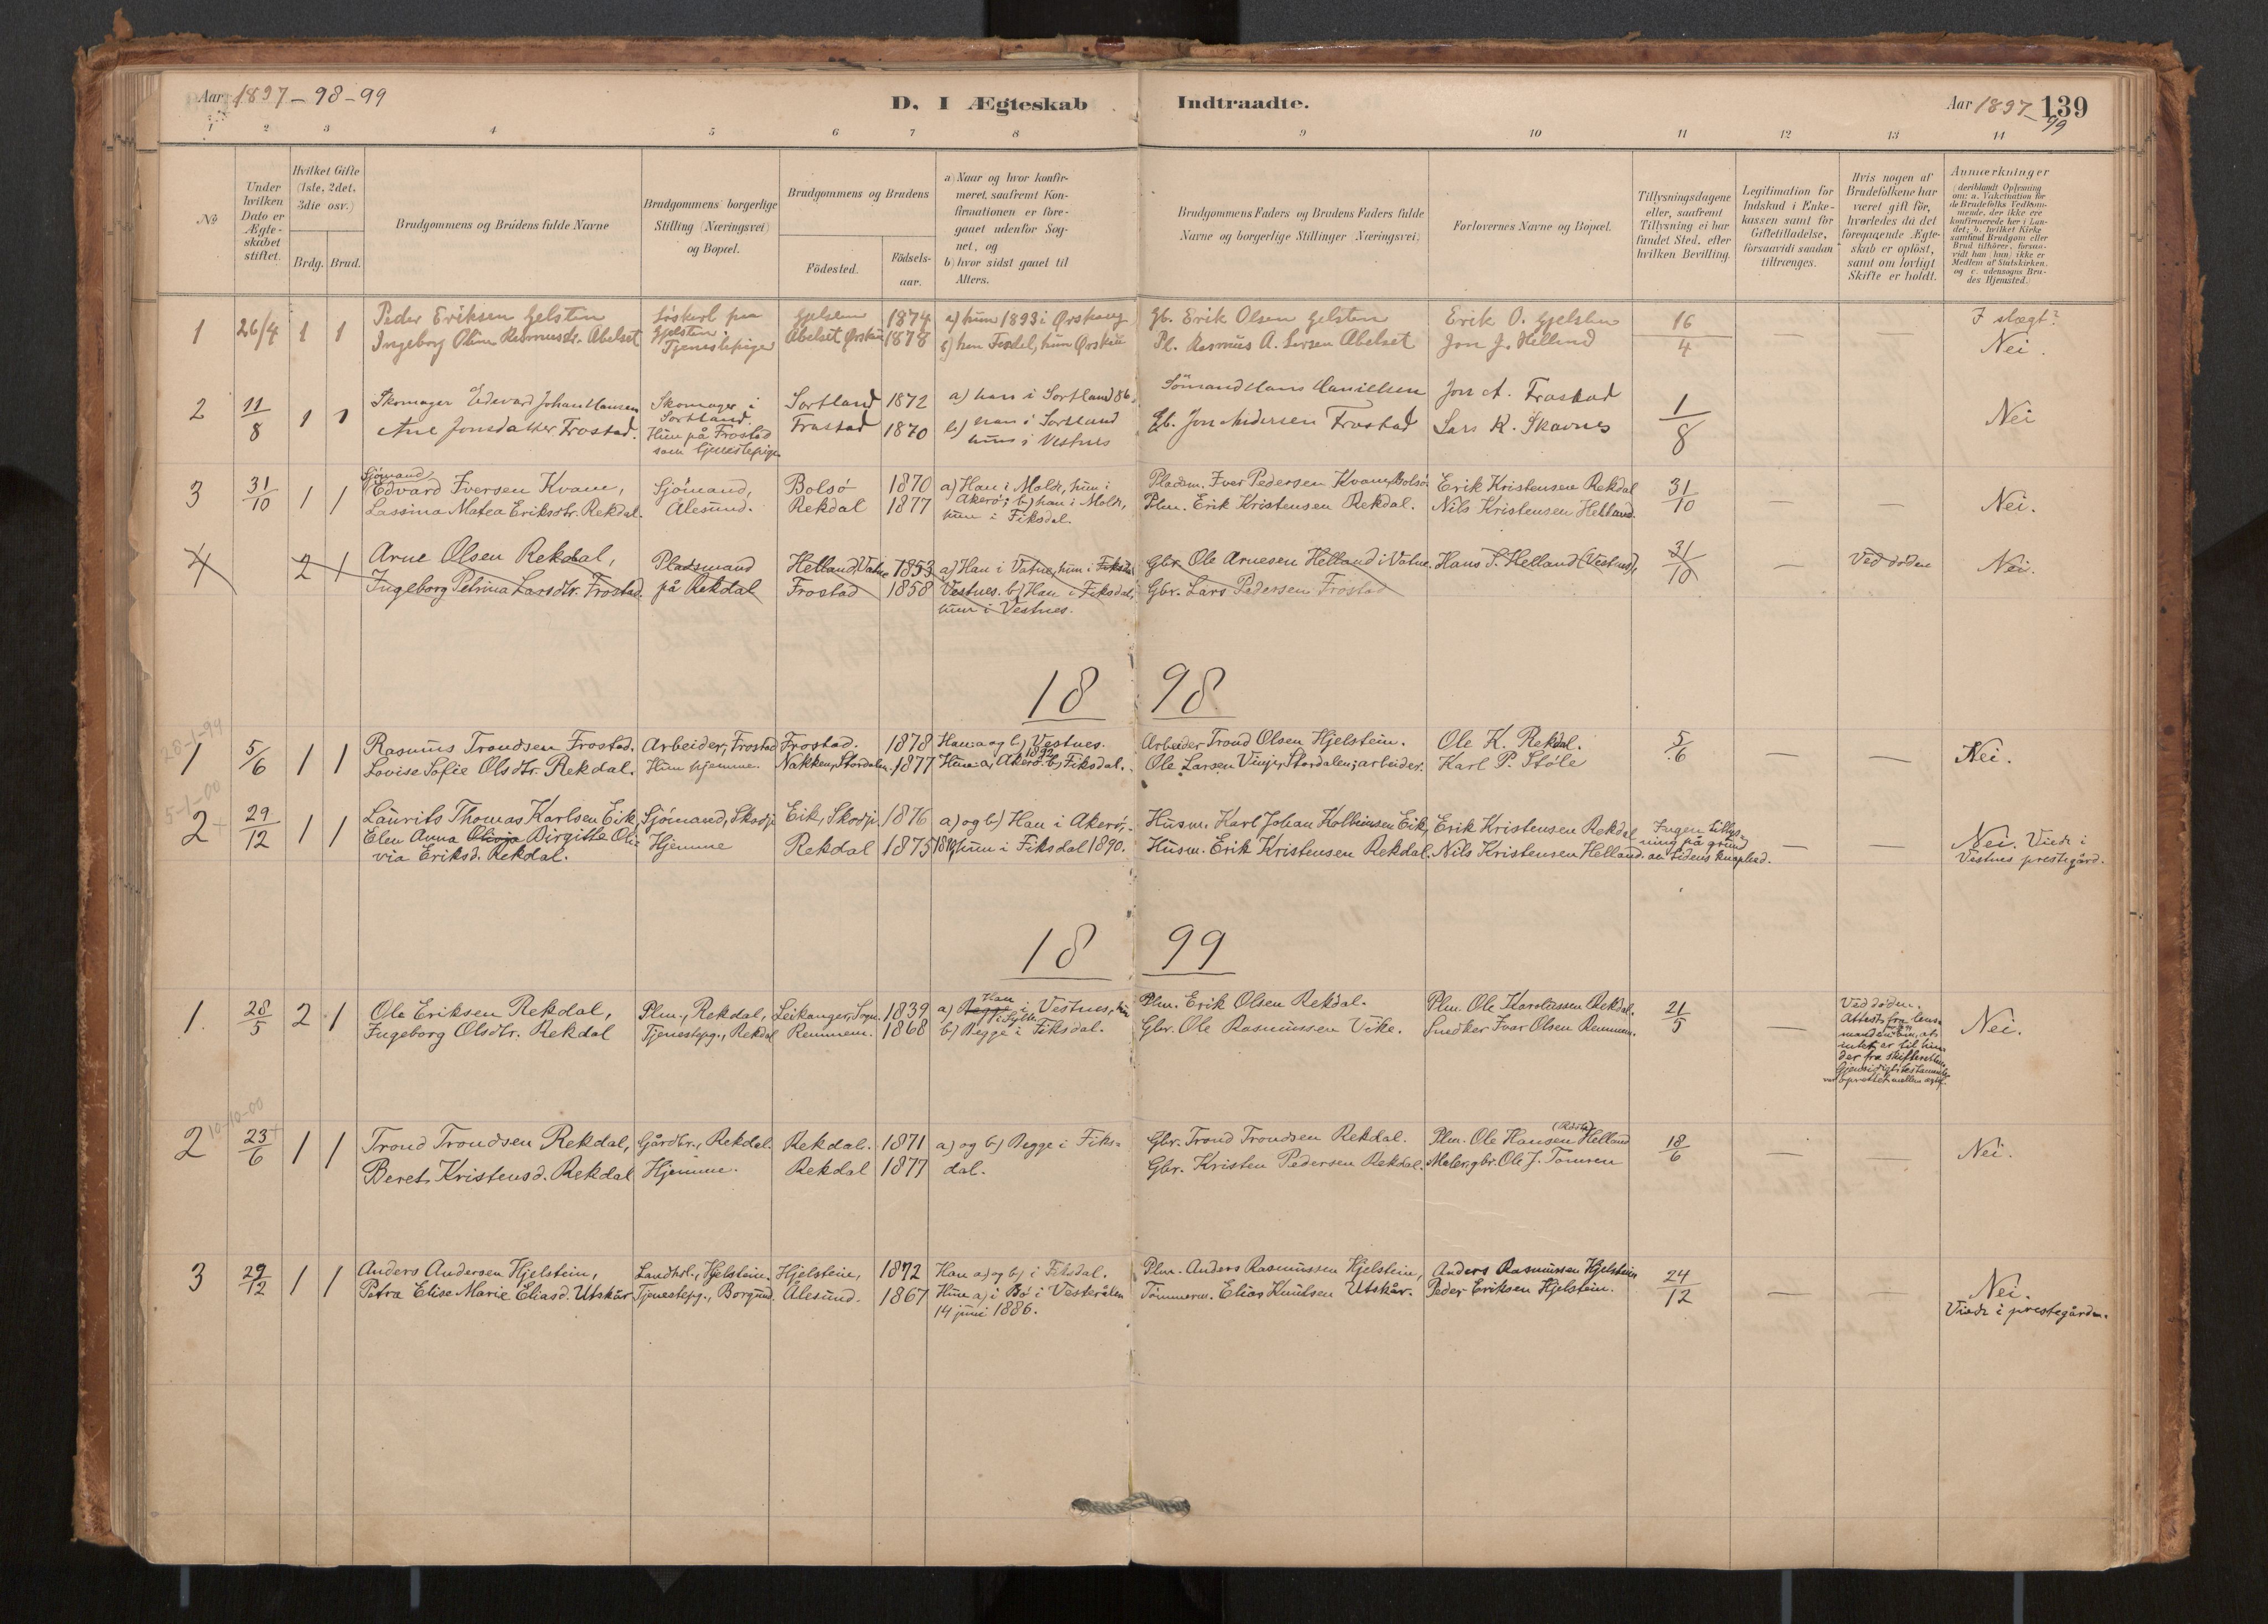 Aar 1897-98-99
D. I Ægteskab Indtraadte.
Aar 1897-99 139
1 2 3 4 5 6 7 8 9 10 11 12 13 14
No
Under hvilken Dato er Ægteskabet stiftet.
Hvilket Gifte (1ste, 2det, 3die osv.)
Brdg. Brud.
Brudgommens og Brudens fulde Navne
Brudgommens borgerlige Stilling (Næringsvei) og Bopæl.
Brudgommens og Brudens
Födested.
Födselsaar.
a) Naar og hvor konfirmeret, saafremt Konfirmationen er foregaaet udenfor Sognet, og
b) hvor sidst gaaet til Alters.
Brudgommens Faders og Brudens Faders fulde Navne og borgerlige Stillinger (Næringsvei)
Forlovernes Navne og Bopæl.
Tillysningsdagene eller, saafremt Tillysning ei har fundet Sted, efter hvilken Bevilling.
Legitimation for Indskud i Enkekassen samt for Giftetilladelse, forsaavidt saadan tiltrænges.
Hvis nogen af Brudefolkene har været gift för, hvorledes da det foregaaende Ægteskab er oplöst, samt om lovligt Skifte er holdt.
Anmærkninger (deriblandt Oplysning om: a. Vakcination for de Brudefolks Vedkommende, der ikke ere konfirmerede her i Landet; b. hvilket Kirkesamfund Brudgom eller Brud tilhörer, forsaavidt han (hun) ikke er Medlem af Statskirken, og c. udensogns Brudes Hjemsted.)
1 26/4 1 1 Peder Eriksen Gelsten 1874 a) hun 1893 i Ørskoug Gb. Erik Olsen Gelsten Erik O. Gjelsten 16/4 — — I slægt?
Ingeborg Oline Rasmusdr. Abelset Tjenestepige Abelset 1878 Pl. Rasmus A. Abelset Jon J. Helland Nei.
2 11/8 1 1 Skomager Edevard Johan Hansen Skomager i Sortland. Sortland 1872 a) han i Sortland 86 Sömand Hans Danielsen Jon A. Frostad 1/8 Nei
Ane Jonsdatter Frostad. Hun på Frostad som tjenestepige Frostad 1870 b) han i Sortland hun i Vestnes Gb. Jon Andersen Frostad Lars K. Skavnes
3 31/10 1 1 Sjömand Edvard Iversen Kvam, Sjömand, Ålesund. Bolsö 1870 a) Han i Molde, hun i Akerö; b) han i Molde, hun i Fiksdal. Pladsm. Iver Pedersen Kvam, Bolsö Erik Kristensen Rekdal 31/10 — — Nei.
Lassina Matea Eriksdtr. Rekdal. Rekdal 1877 Plm. Erik Kristensen Rekdal. Nils Kristensen Helland.
4 2 1 Arne Olsen Rekdal, Pladsmand på Rekdal Helland, Vatne 1853 a) Han i Vatne, hun i Fiksdal Vestnes. b) Han i Fiksdal, hun i Vestnes. Gbr. Ole Arnesen Helland i Vatne. Hans S. Helland (Vestnes), 31/10 — Ved döden Nei.
Ingeborg Petrina Larsdtr. Frostad. Frostad 1858 Gbr. Lars Pedersen Frostad
18 98
28-1-99
1 5/6 1 1 Rasmus Trondsen Frostad. Arbeider, Frostad Frostad. 1878 Han a og b) Vestnes. Arbeider Trond Olsen Hjelstein. Ole K. Rekdal. 5/6 — — Nei.
Lovise Sofie Olsdtr. Rekdal. Hun hjemme. Nakken, Stordalen. 1877 Hun a) Akerö 1892 b) Fiksdal. Ole Larsen Vinje, Stordalen; arbeider. Karl P. Stöle
5-1-00
2 29/12 1 1 Laurits Thomas Karlsen Eik, Sjömand, Skodje Eik, Skodje. 1876 a) og b) Han i Akerö, Husm. Karl Johan Kolbeinsen Eik, Erik Kristensen Rekdal Ingen tillysning på grund av tidens knaphed. — — Nei. Viede i Vestnes prestegård.
Elen Anna Olivia Birgitte Olivia Eriksd. Rekdal. Hjemme Rekdal 1875 hun i Fiksdal 1890. Husm. Erik Kristensen Rekdal. Nils Kristensen Helland.
18 99
1. 28/5 2 1 Ole Eriksen Rekdal, Plm., Rekdal, Leikanger, Sogn. 1839 a) Begge Han i Vestnes, hun i Sylte Plm. Erik Olsen Rekdal. Plm. Ole Karolussen Rekdal. 21/5 — Ved döden. Attest fra lensmanden om, at intet er til hinder fra skifteretten. Nei.
Ingeborg Olsdtr. Rekdal Tjenestepg., Rekdal Remmem. 1868 b) Begge i Fiksdal. Gbr. Ole Rasmussen Vike. Snedker Ivar Olsen Remmem.
10-10-00
2 23/6 1 1 Trond Trondsen Rekdal, Gårdbr., Rekdal. Rekdal. 1871 a) og b) Begge i Fiksdal. Gbr. Trond Trondsen Rekdal. Plm. Ole Hansen Helland 18/6 — — Nei.
Beret Kristensd. Rekdal Hjemme. Rekdal 1877 Gbr. Kristen Pedersen Rekdal. Maler, gbr. Ole J. Tomren
3 29/12 1 1 Anders Andersen Hjelstein, Landhdl., Hjelstein. Hjelstein, 1872 Han a) og b) i Fiksdal. Plm. Anders Rasmussen Hjelstein, Anders Rasmussen Hjelstein 24/12 — — Nei.
Petra Elise Marie Eliasd. Utskår. Tjenestepg., Borgund. Ålesund. 1867 Hun a) i Bö i Vesterålen 14 juni 1886. Tömmerm. Elias Knutsen Utskår. Peder Eriksen Hjelstein. Viede i prestegården.